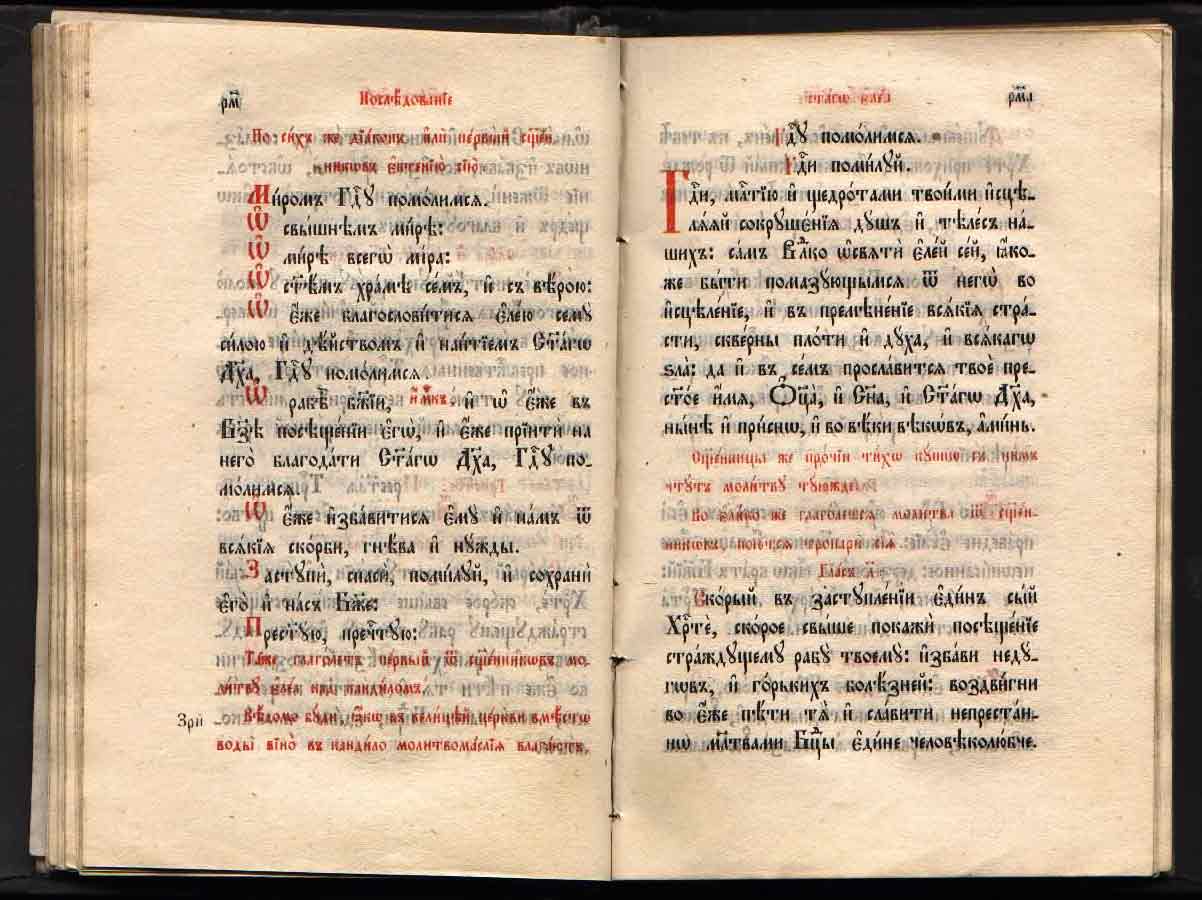 рм҃
Послѣдованїе
По си́хъ же дїа́конъ и҆лѝ пе́рвый сщ҃е́н-
никѡвъ є҆ктенїю̀ сїю̀
Ми́ромъ Гдⷭ҇ꙋ помо́лимсѧ.
Ѿ свы́шнѣмъ ми́рѣ:
Ѿ ми́рѣ всегѡ̀ мі́ра:
Ѿ ст҃ѣ́мъ хра́мѣ се́мъ, и҆ съ вѣ́рою:
Ѿ є҆́же благослови́тисѧ є҆ле́ю семꙋ̀
си́лою и҆ дѣ́йствомъ и҆ наи́тїем Ст҃а́гѡ
Дх҃а, Гдⷭ҇ꙋ помо́лимсѧ
Ѿ рабѣ̀ бж҃їи, и҆́м҃къ. и҆ ѡ҆ є҆́же въ
Бз҃ѣ посѣще́нїи є҆гѡ̀, и҆ є҆́же прїитѝ на
него̀ благода́ти Ст҃а́гѡ Дх҃а, Гдⷭ҇ꙋ по-
мо́лимсѧ
Ѿ є҆́же и҆зба́витисѧ є҆мꙋ̀ и҆ на́мъ ѿ
всѧ́кїѧ ско́рби, гнѣ́ва и҆ нꙋ́жды.
Застꙋпѝ, спасѝ, поми́лꙋй, и҆ сохранѝ
є҆го̀ и҆ на́съ Бж҃е:
Прест҃ꙋ́ю, пречⷭ҇тꙋю:
Та́же глаго́летъ пе́рвый ѿ сщ҃е́нникѡвъ мо-
ли́твꙋ є҆ле́а над̾ канди́ломъ
Зрѝ
Вѣ́домо бꙋ́ди, ꙗ҆́кѡ въ вели́цѣй це́ркви вмѣ́стѡ
воды̀ вїно̀ въ канди́ло молитвома́слїѧ влага́ютъ.
рм҃а
ст҃а́гѡ є҆ле́а
Гдⷭ҇ꙋ помо́лимсѧ.
Гдⷭ҇и поми́лꙋй.
Гдⷭ҇и, млⷭ҇тїю и҆ щедро́тами твои́ми и҆сцѣ-
лѧ́ѧй сокрꙋше́нїѧ дꙋ́шъ и҆ тѣле́съ на́-
шихъ: са́мъ Влⷣко ѡ҆свѧтѝ є҆ле́й се́й, ꙗ҆́ко-
же бы́ти помазꙋ́ющымсѧ ѿ негѡ̀ во
и҆сцѣле́нїе, и҆ въ премѣне́нїе всѧ́кїѧ стра́-
сти, скве́рны пло́ти и҆ дꙋ́ха, и҆ всѧ́кагѡ
ѕла̀: да и҆ въ се́мъ просла́витсѧ твоѐ пре-
ст҃о́е и҆́мѧ, Ѻ҆ц҃а̀, и҆ Сн҃а, и҆ Ст҃а́гѡ Дх҃а,
ны́нѣ и҆ при́снѡ, и҆ во вѣ́ки вѣкѡ́въ, а҆ми́нь.
Сщ҃е́нницы же про́чїи ти́хѡ кꙋ́пнѡ съ ни́мъ
чтꙋ́тъ моли́твꙋ тꙋ́южде
Во є҆ли́ко же глаго́летсѧ моли́тва ѿ сщ҃е́н-
никѡвъ, пою́тсѧ тропари̑ сїѧ̑.
Гла́съ д҃.
Ско́рый въ застꙋпле́нїи є҆ди́нъ сы́й
Хрⷭ҇тѐ, ско́рое свы́ше покажѝ посѣще́нїе
стра́ждꙋщемꙋ рабꙋ̀ твоемꙋ̀: и҆зба́ви недꙋ́-
гѡвъ, и҆ го́рькихъ болѣ́зней: воздви́гни
во є҆́же пѣ́ти тѧ̀ и҆ сла́вити непреста́н-
нѡ мл҃твами Бцⷣы є҆ди́не человѣколю́бче.